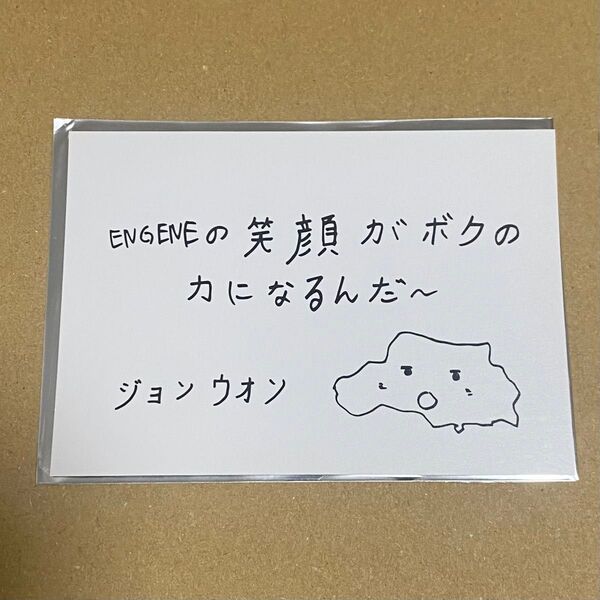 ENGENEの笑顔がボクの
力になるんだ～
ジョンウォン